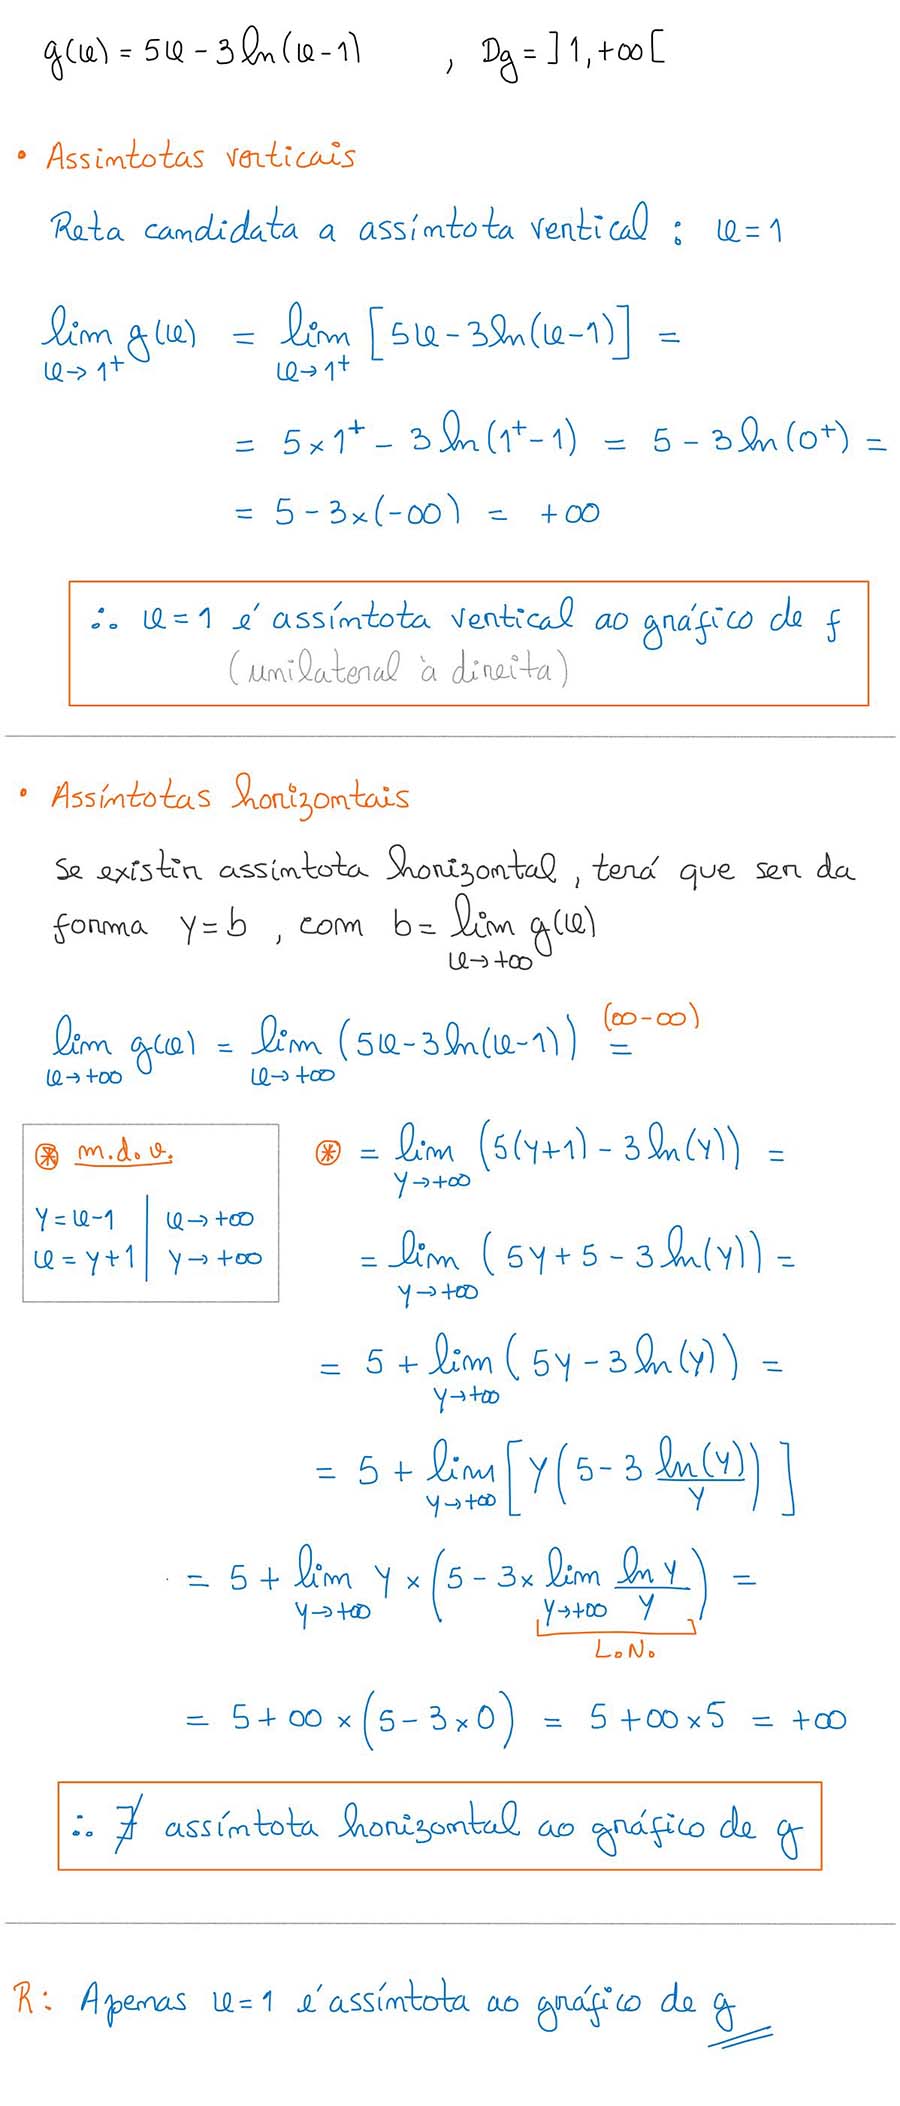 g(x) = 5x - 3 ln(x-1) , Dg = ]1, +∞[
• Assíntotas verticais
Reta candidata a assíntota vertical : x = 1
lim g(x) = lim [5x - 3 ln(x-1)] =
x→1⁺ x→1⁺
= 5 × 1⁺ - 3 ln(1⁺-1) = 5 - 3 ln(0⁺) =
= 5 - 3×(-∞) = +∞
∴ x = 1 é assíntota vertical ao gráfico de f
(unilateral à direita)
• Assíntotas horizontais
Se existir assíntota horizontal, terá que ser da
forma y = b , com b = lim g(x)
x→+∞
lim g(x) = lim (5x - 3 ln(x-1)) (∞-∞) =
x→+∞ x→+∞
⊛ m.d.v.
y = x-1 | x→+∞
x = y+1 | y→+∞
⊛ = lim (5(y+1) - 3 ln(y)) =
y→+∞
= lim (5y + 5 - 3 ln(y)) =
y→+∞
= 5 + lim (5y - 3 ln(y)) =
y→+∞
= 5 + lim [y(5 - 3 ln(y)/y)]
y→+∞
= 5 + lim y × (5 - 3× lim ln y/y) =
y→+∞ y→+∞
L.N.
= 5 + ∞ × (5 - 3×0) = 5 + ∞×5 = +∞
∴ ∄ assíntota horizontal ao gráfico de g
R: Apenas x = 1 é assíntota ao gráfico de g